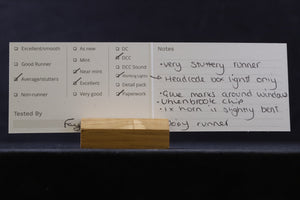 Excellent/smooth
Good Runner
Average/stuttery
Non-runner
Tested By
As new
Mint
Near mint
Excellent
Very good
DC
DCC
DCC Sound
Working Lights
Detail pack
Paperwork
Notes
•Very Stuttery runner
Headcode box lights only
•Glue marks around window
•Uhlenbrock chip
•1x horn is slightly bent
runner